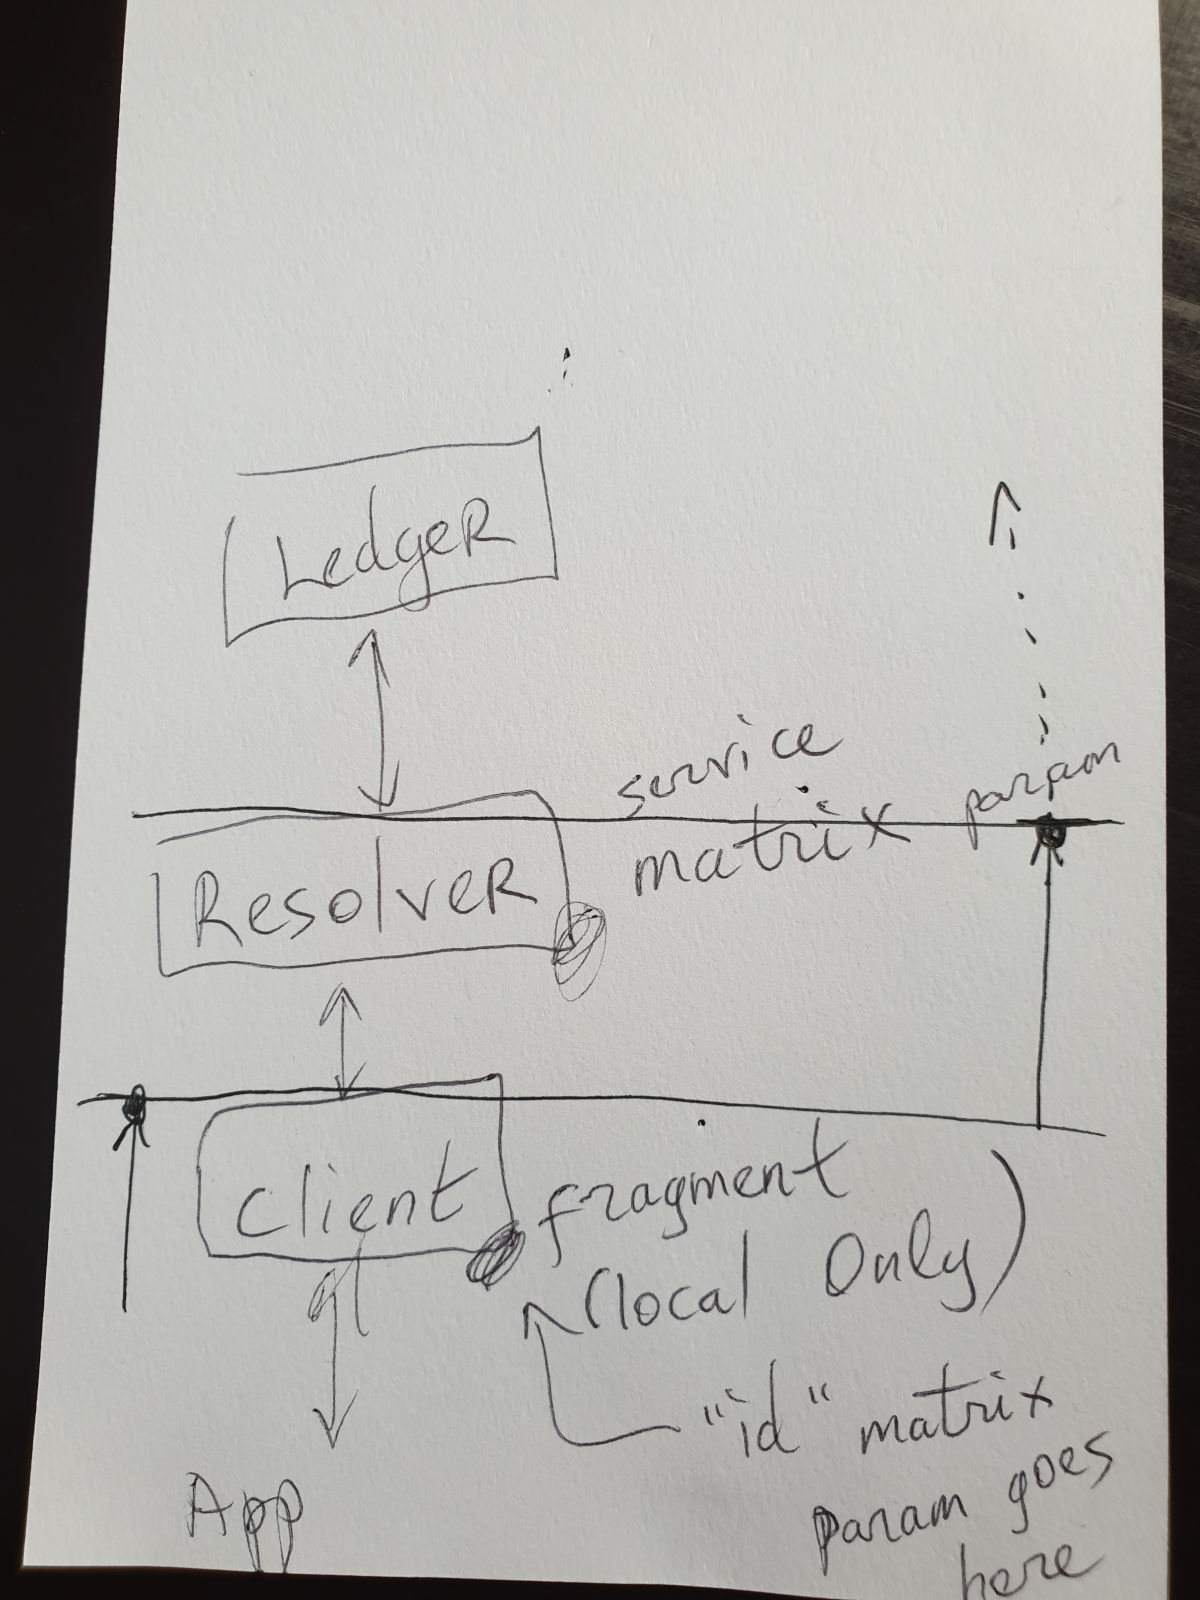 Ledger
service
matrix param
Resolver
Client
fragment
(local Only)
"id" matrix
param goes
here
App